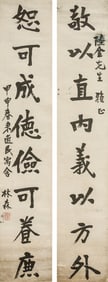 陸金先生雅正
敬以直內義以方外
恕可成德儉可養廉
甲申春東邀民寫舍
林森